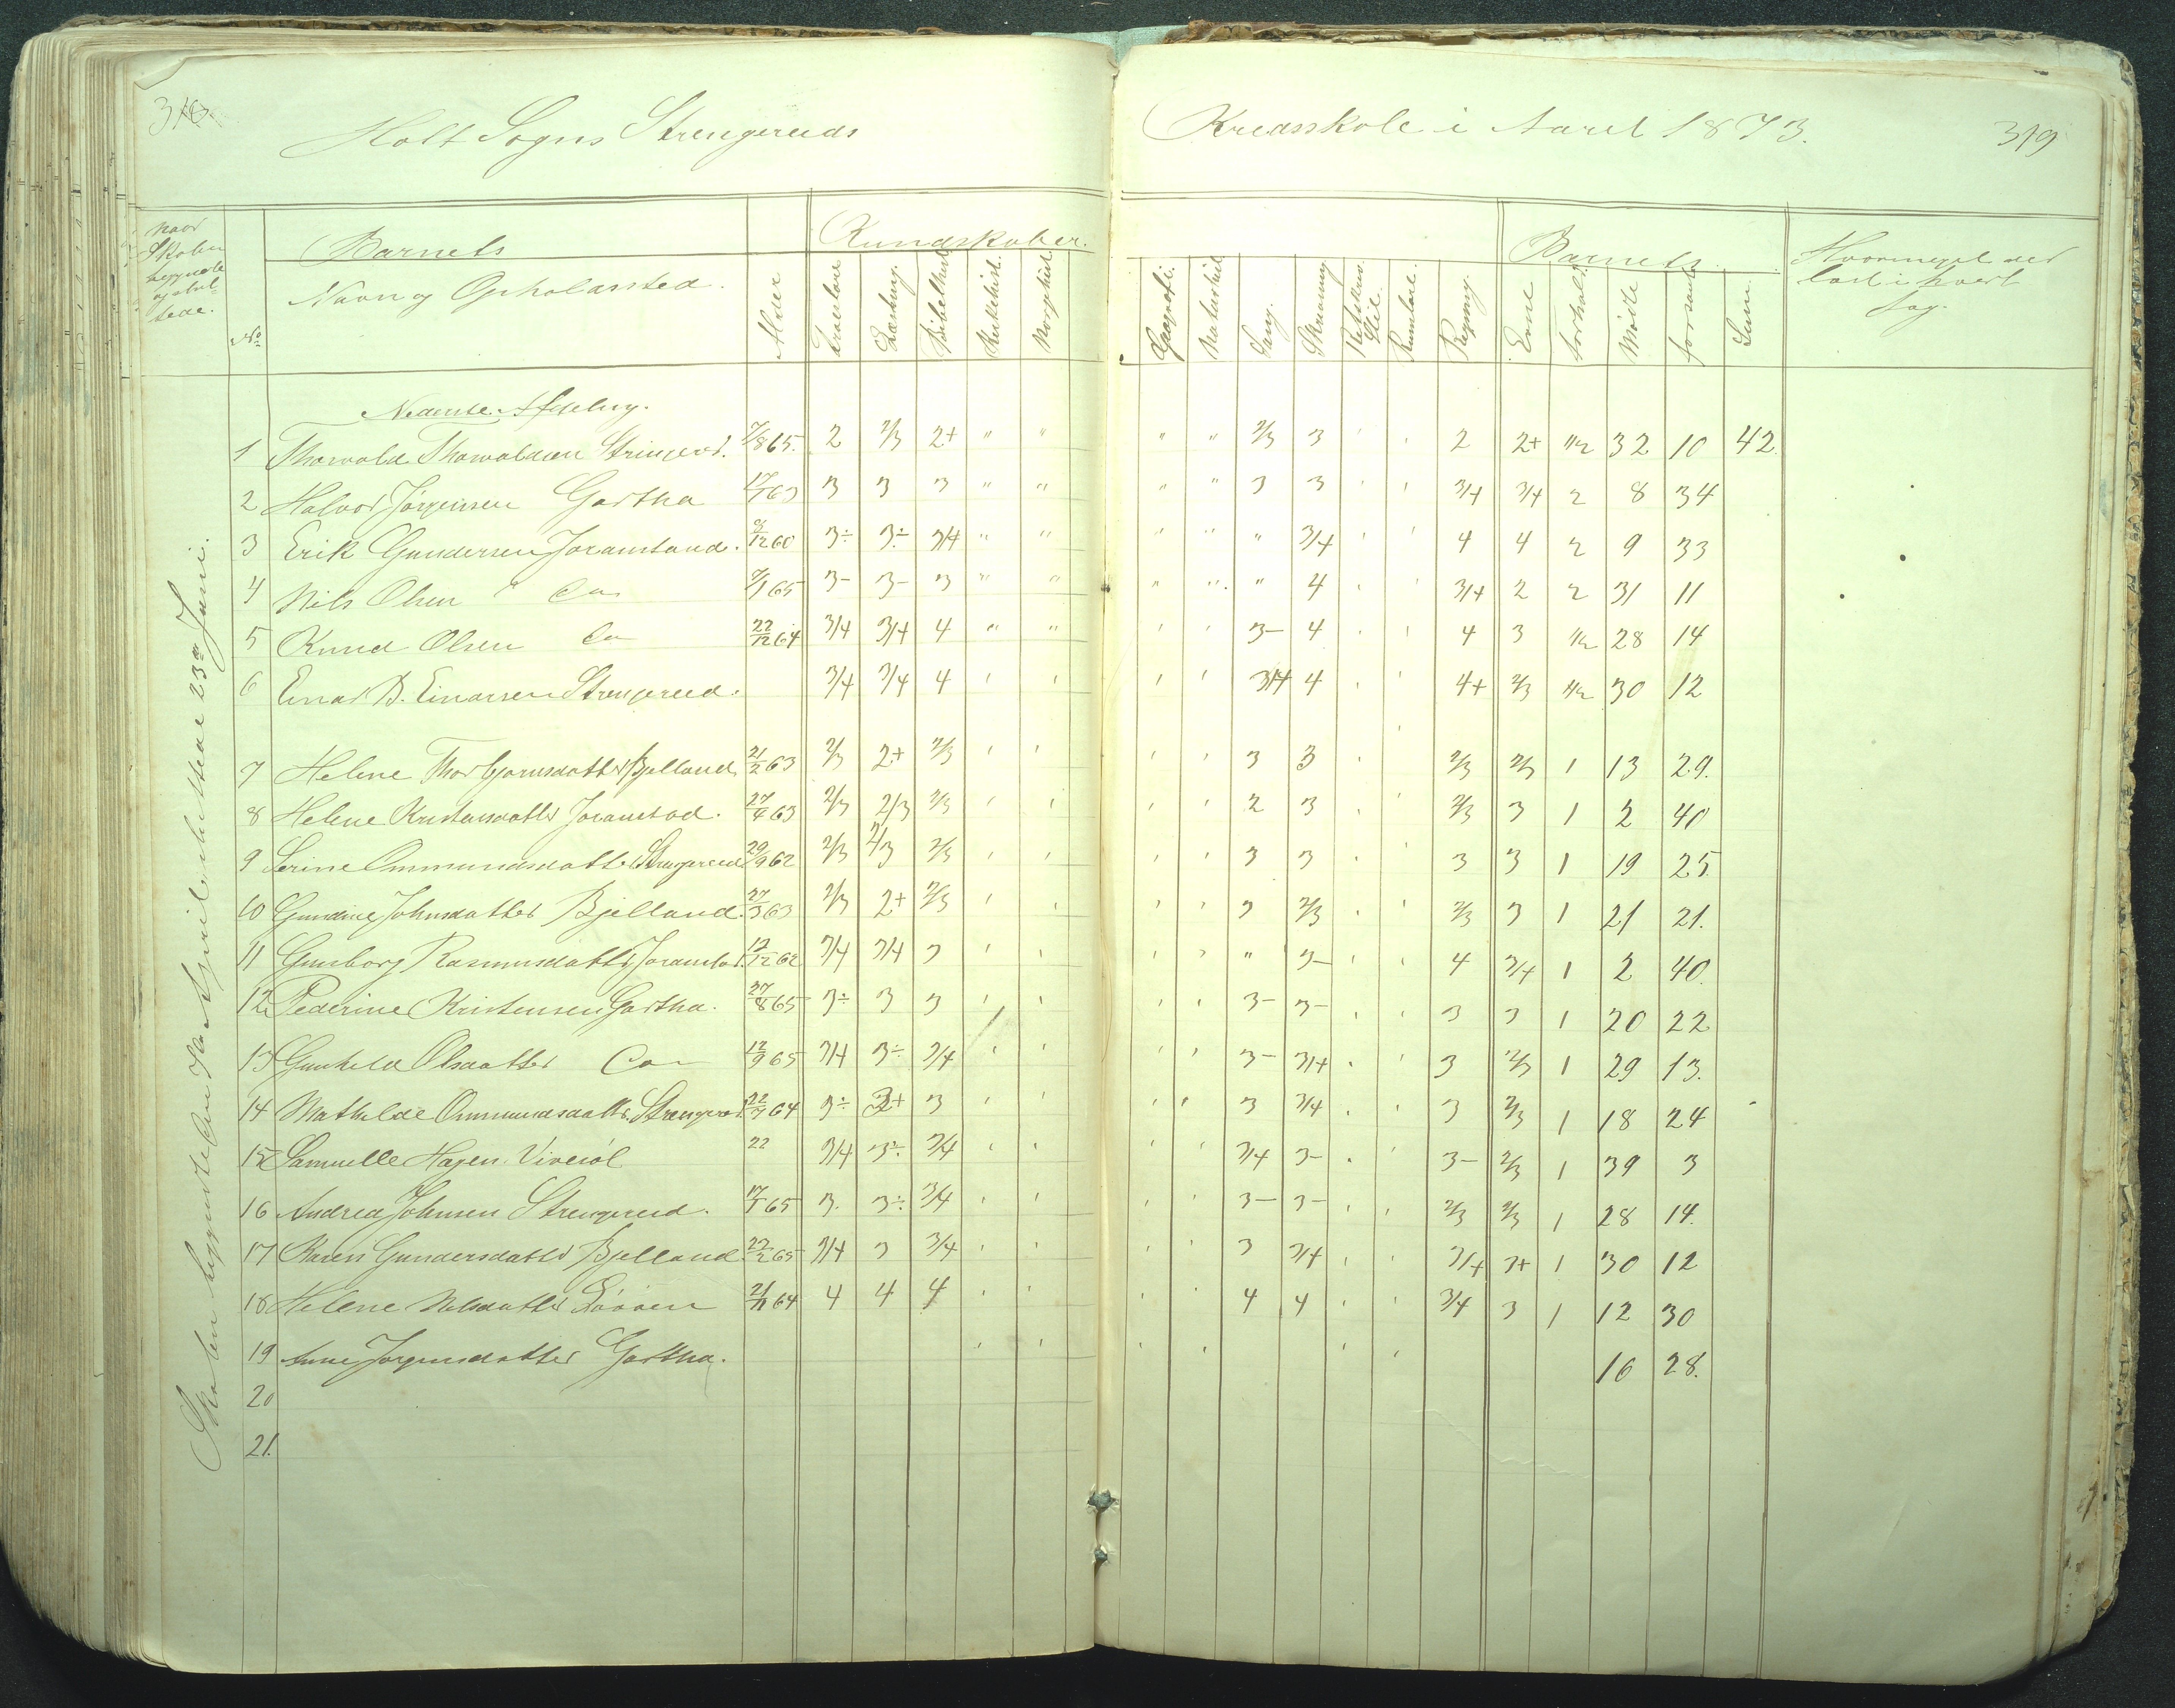 318.
Holt Sogns Strengereids Kredsskole i Aaret 1873.
319
Naar Skolen begyndte og sluttede.
No
Barnets
Navn og Opholdssted.
Alder
Kundskaber.
Troeslære
Læsning.
Bibelhist.
Kirkehist.
Norghist.
Geografi.
Naturhist
Sang.
Skrivning
Retskrivn. Stil.
Rumlære.
Regning
Barnets
Evne
Forhold.
Mødte
forsømte
Sum.
Hvormeget er læst i hvert Fag.
Nederste Afdeling.
1 Thorvald Thorvaldsen Strengereid. 7/8 65. 2 2/3 2+ " " " " 2/3 3 ' ' 2 2+ 1/2 32 10 42.
2 Halvor Jørgensen Gartha 63 3 3 3 " " " " 3 3 ' ' 3/4 3/4 2 8 34
3 Erik Gundersen Joramstad. 3÷ 3÷ 3/4 " " " " " 3/4 ' ' 4 4 2 9 33
4 Nils Olsen " Do 65 3- 3- 3 " " " " " 4 ' ' 3/4 2 2 31 11
5 Knud Olsen Do 22/12 64 3/4 3/4 4 " " ' ' 3- 4 ' ' 4 3 1/2 28 14
6 Einar B. Einarsen Strengereid. 3/4 3/4 4 ' ' ' ' 3/4 4 ' ' 4+ 2/3 1/2 30 12
7 Helene Thorbjørnsdatter Bjelland 21/2 63 2/3 2+ 2/3 ' ' ' ' 3 3 ' ' 2/3 2/3 1 13 29.
8 Helene Kristensdatter Joramstad. 27/4 63 2/3 2/3 2/3 ' ' ' ' 2 3 ' ' 2/3 3 1 2 40
9 Serine Ommundsdatter Strengereid 29/9 62 2/3 2/3 2/3 ' ' ' ' 3 3 ' ' 3 3 1 19 25.
10 Gundine Johnsdatter Bjelland. 27/3 63 2/3 2+ 2/3 ' ' ' ' 3 2/3 ' ' 2/3 3 1 21 21.
11 Gunborg Rasmusdatter Joramstad. 12/12 62 3/4 3/4 3 ' ' ' ' " 3- ' ' 4 3/4 1 2 40.
12 Pederine Kristensen Gartha. 27/8 65 3÷ 3 3 ' ' ' ' 3- 3- ' ' 3 3 1 20 22
13 Gunhild Olsdatter Do 12/9 65 3/4 3÷ 3/4 ' ' ' ' 3- 3/4 ' ' 3 2/3 1 29 13.
14 Mathilde Ommundsdatter Strengereid. 64 3÷ 3+ 3 ' ' ' ' 3 3/4 ' ' 3 2/3 1 18 24
15 Samuelle Hagen 22 3/4 3÷ 3/4 ' ' ' ' 3/4 3- ' ' 3- 2/3 1 39 3
16 Andrea Johnsen Strengereid. 17/1 65 3. 3÷ 3/4 ' ' ' ' 3- 3- ' ' 2/3 2/3 1 28 14.
17 Karen Gundersdatter Bjelland 22/2 65 3/4 3 3/4 ' ' ' ' 3 3/4 ' ' 3/4 3+ 1 30 12
18 Helene Nilsdatter 2/11 64 4 4 4 ' ' ' ' 4 4 ' ' 3/4 3 1 12 30
19 Anne Jørgensdatter Gartha. ' ' ' ' ' ' 16 28.
20
21.
Skolen begyndte den April sluttede 23de Juni.